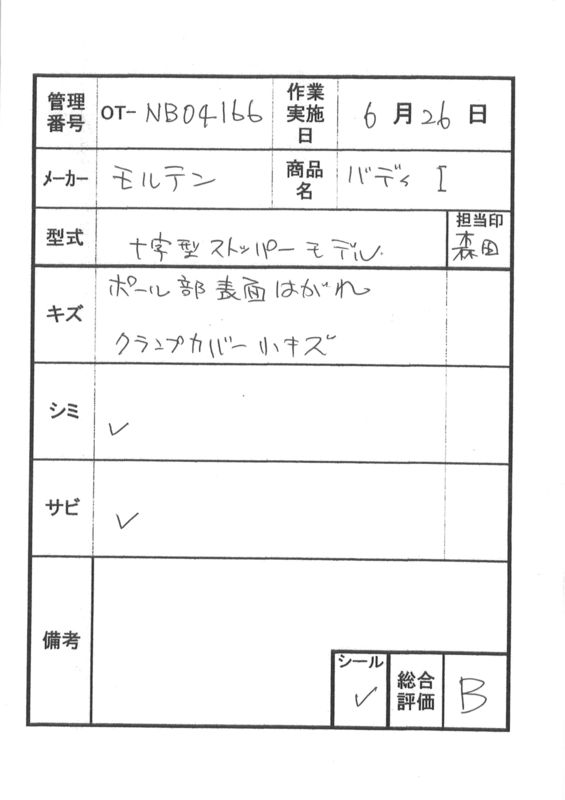 管理番号 OT- NB04166 作業実施日 6月26日
メーカー モルテン 商品名 バディ I
型式 十字型ストッパーモデル 担当印 森田
キズ ポール部表面はがれ
クランプカバー小キズ
シミ ✓
サビ ✓
備考
シール ✓ 総合評価 B